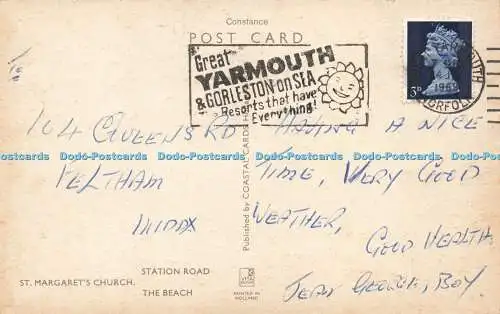 Constance
POST CARD
Great
YARMOUTH
& GORLESTON-on-SEA
Resorts that have
Everything!
3D
YARMOUTH
NORFOLK
To
104 QUEENS RD
FELTHAM
MIDDX
Published by COASTAL CARDS
HAVING A NICE
TIME, VERY GOOD
WEATHER,
GOOD HEALTH
JEAN GEORGE, BOY
Dodo-Postcards Dodo-Postcards Dodo-Postcards Dodo-Postcards Dodo-Postcards
ST. MARGARET'S CHURCH.
STATION ROAD
THE BEACH
PRINTED IN
HOLLAND